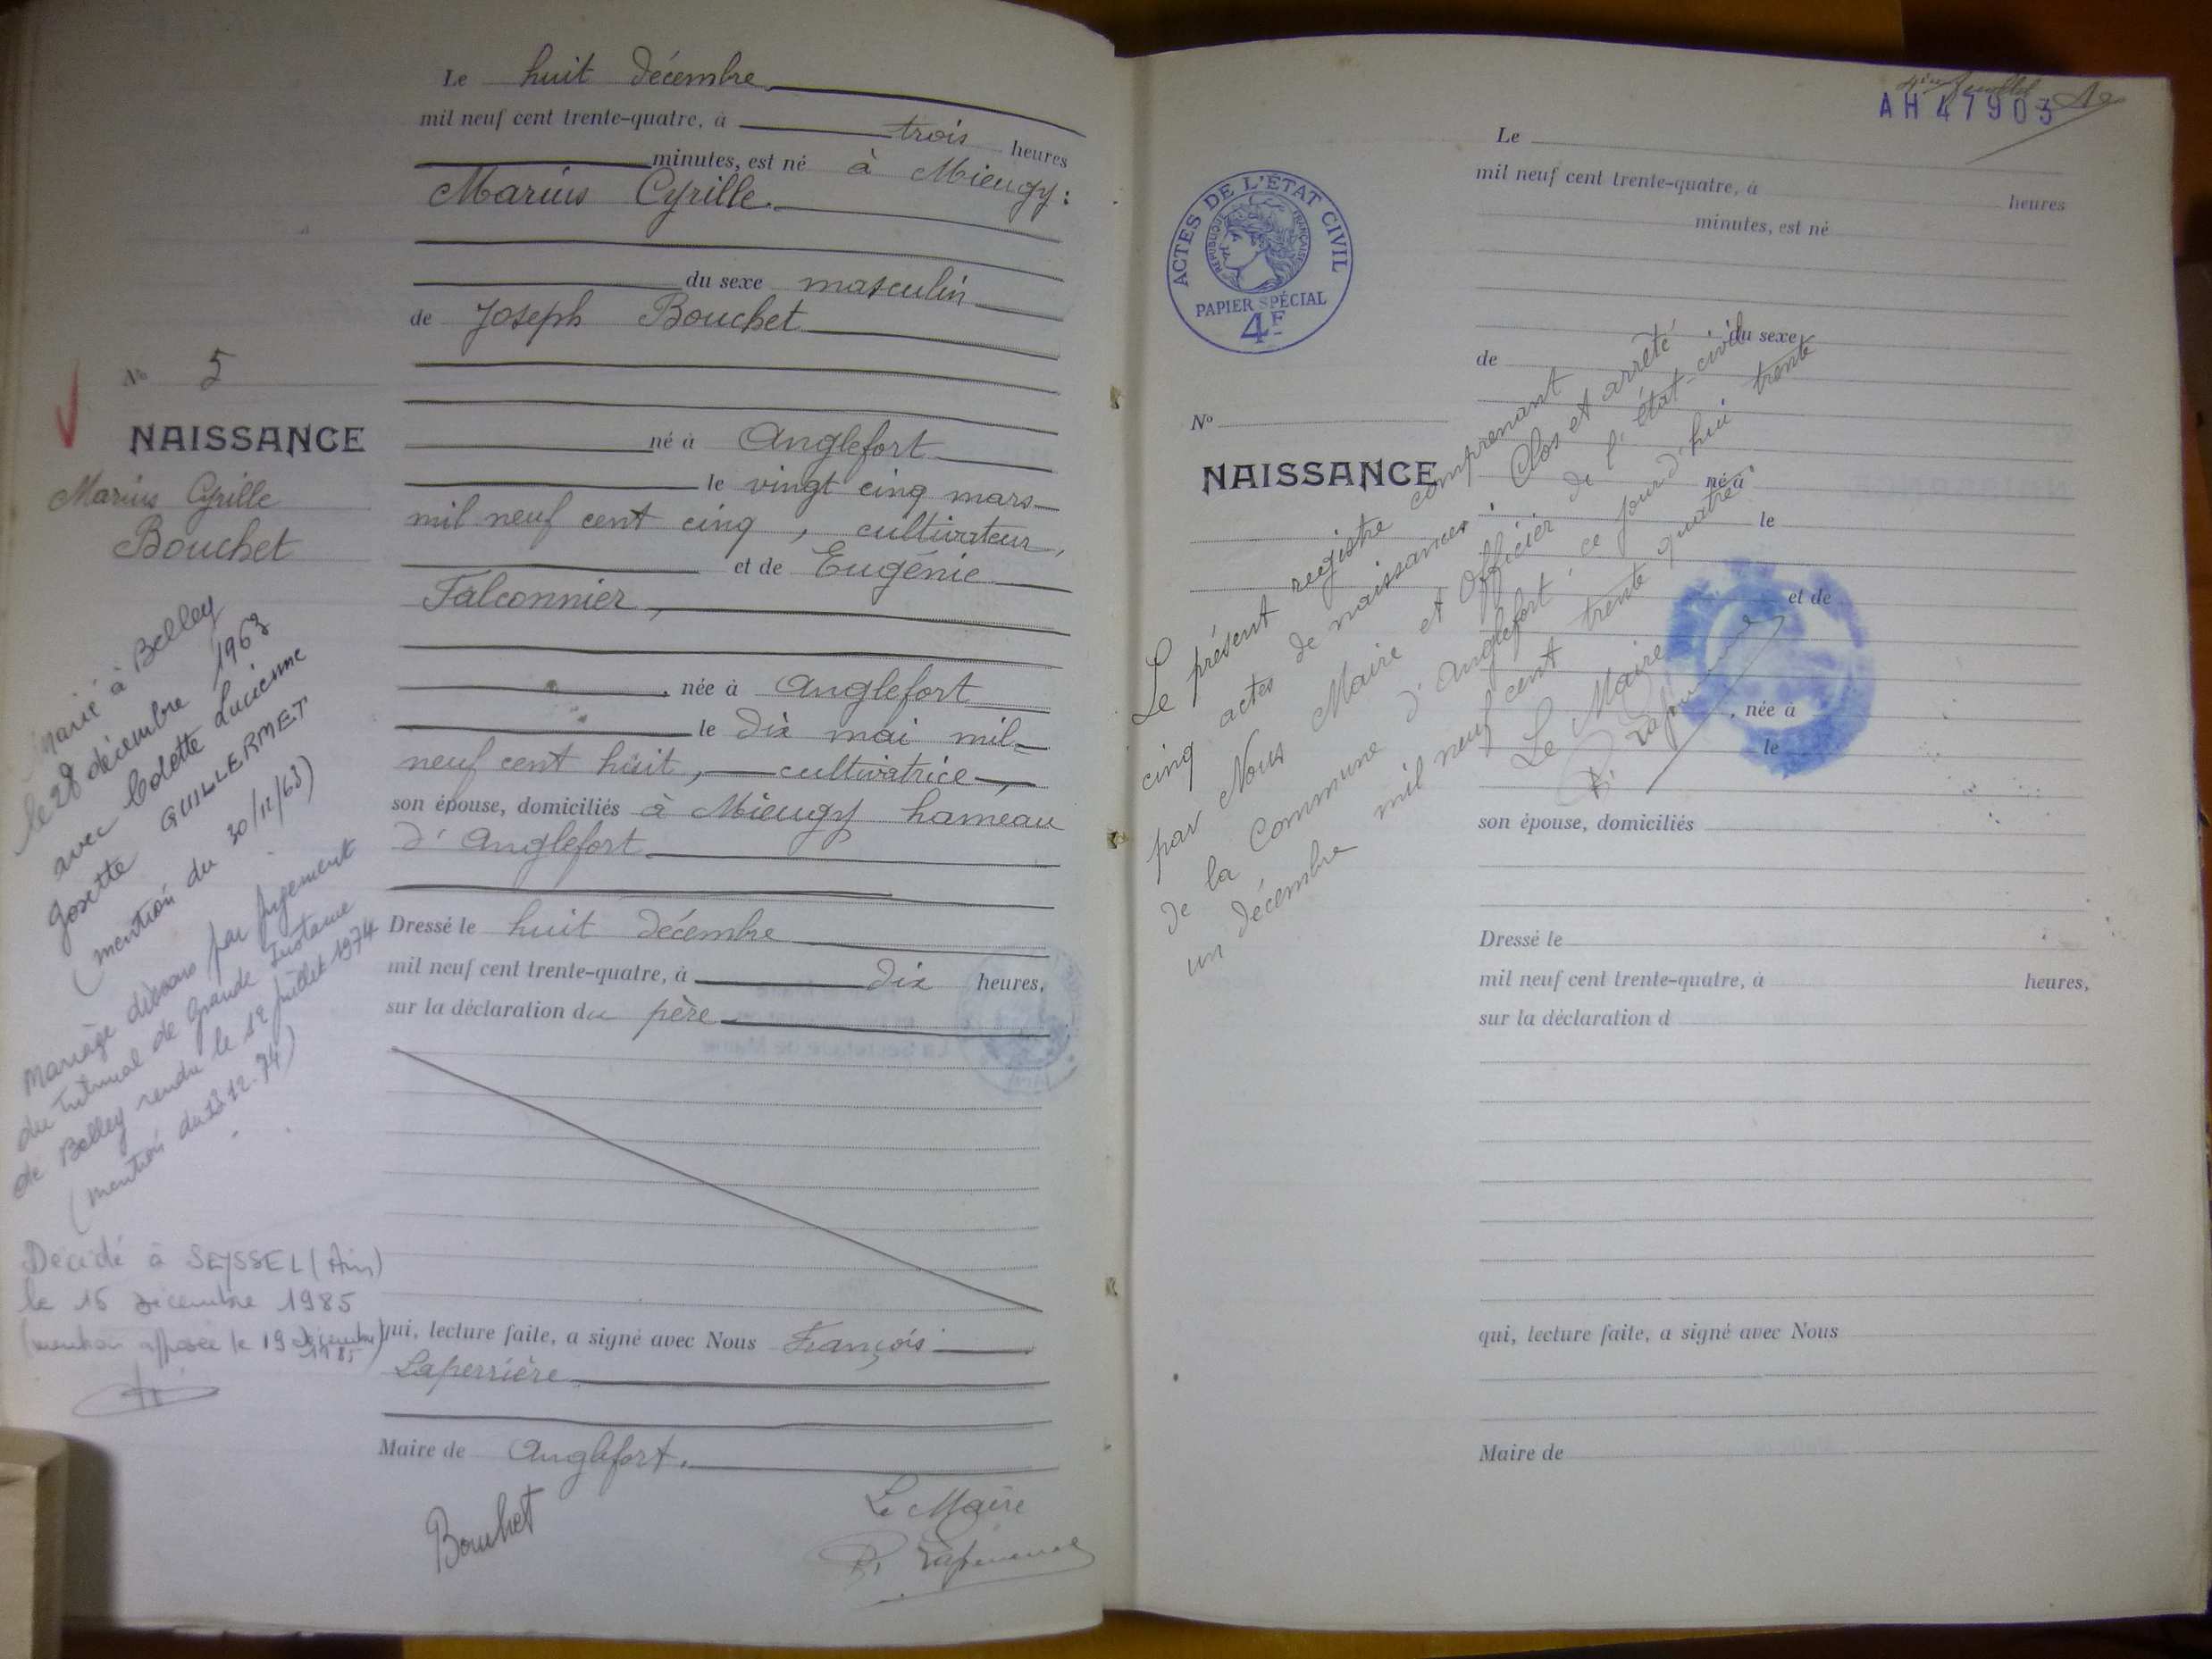 Le huit décembre
mil neuf cent trente-quatre, à trois heures
minutes, est né à Mieugy :
Marius Cyrille.
du sexe masculin
de Joseph Bouchet
né à Anglefort
le vingt cinq mars
mil neuf cent cinq, cultivateur,
et de Eugénie
Falconnier,
, née à Anglefort
le dix mai mil
neuf cent huit, cultivatrice,
son épouse, domiciliés à Mieugy hameau
d'Anglefort
Dressé le huit décembre
mil neuf cent trente-quatre, à dix heures,
sur la déclaration du père
qui, lecture faite, a signé avec Nous François
Laperrière
Maire de Anglefort.
Bouchet
Le Maire
Laperrière
No 5
NAISSANCE
Marius Cyrille
Bouchet
Marié à Belley
le 28 décembre 1963
avec Colette Lucienne
Josette GUILLERMET
(mention du 30/12/63)
Mariage dissous par jugement
du Tribunal de Grande Instance
de Belley rendu le 12 juillet 1974
(mention du 12.74)
Décédé à SEYSSEL (Ain)
le 15 décembre 1985
(mention apposée le 19 décembre
1985)
AH 47903
ACTES DE L'ÉTAT CIVIL
RÉPUBLIQUE FRANÇAISE
PAPIER SPÉCIAL
4F
Le
mil neuf cent trente-quatre, à heures
minutes, est né
du sexe
de
No
NAISSANCE
né à
le
et de
, née à
le
son épouse, domiciliés
Dressé le
mil neuf cent trente-quatre, à heures,
sur la déclaration d
qui, lecture faite, a signé avec Nous
Maire de
Le présent registre comprenant
cinq actes de naissances. Clos et arrêté
par Nous Maire et Officier de l'état-civil
de la Commune d'Anglefort ce jourd'hui trente
un décembre mil neuf cent trente quatre.
Le Maire